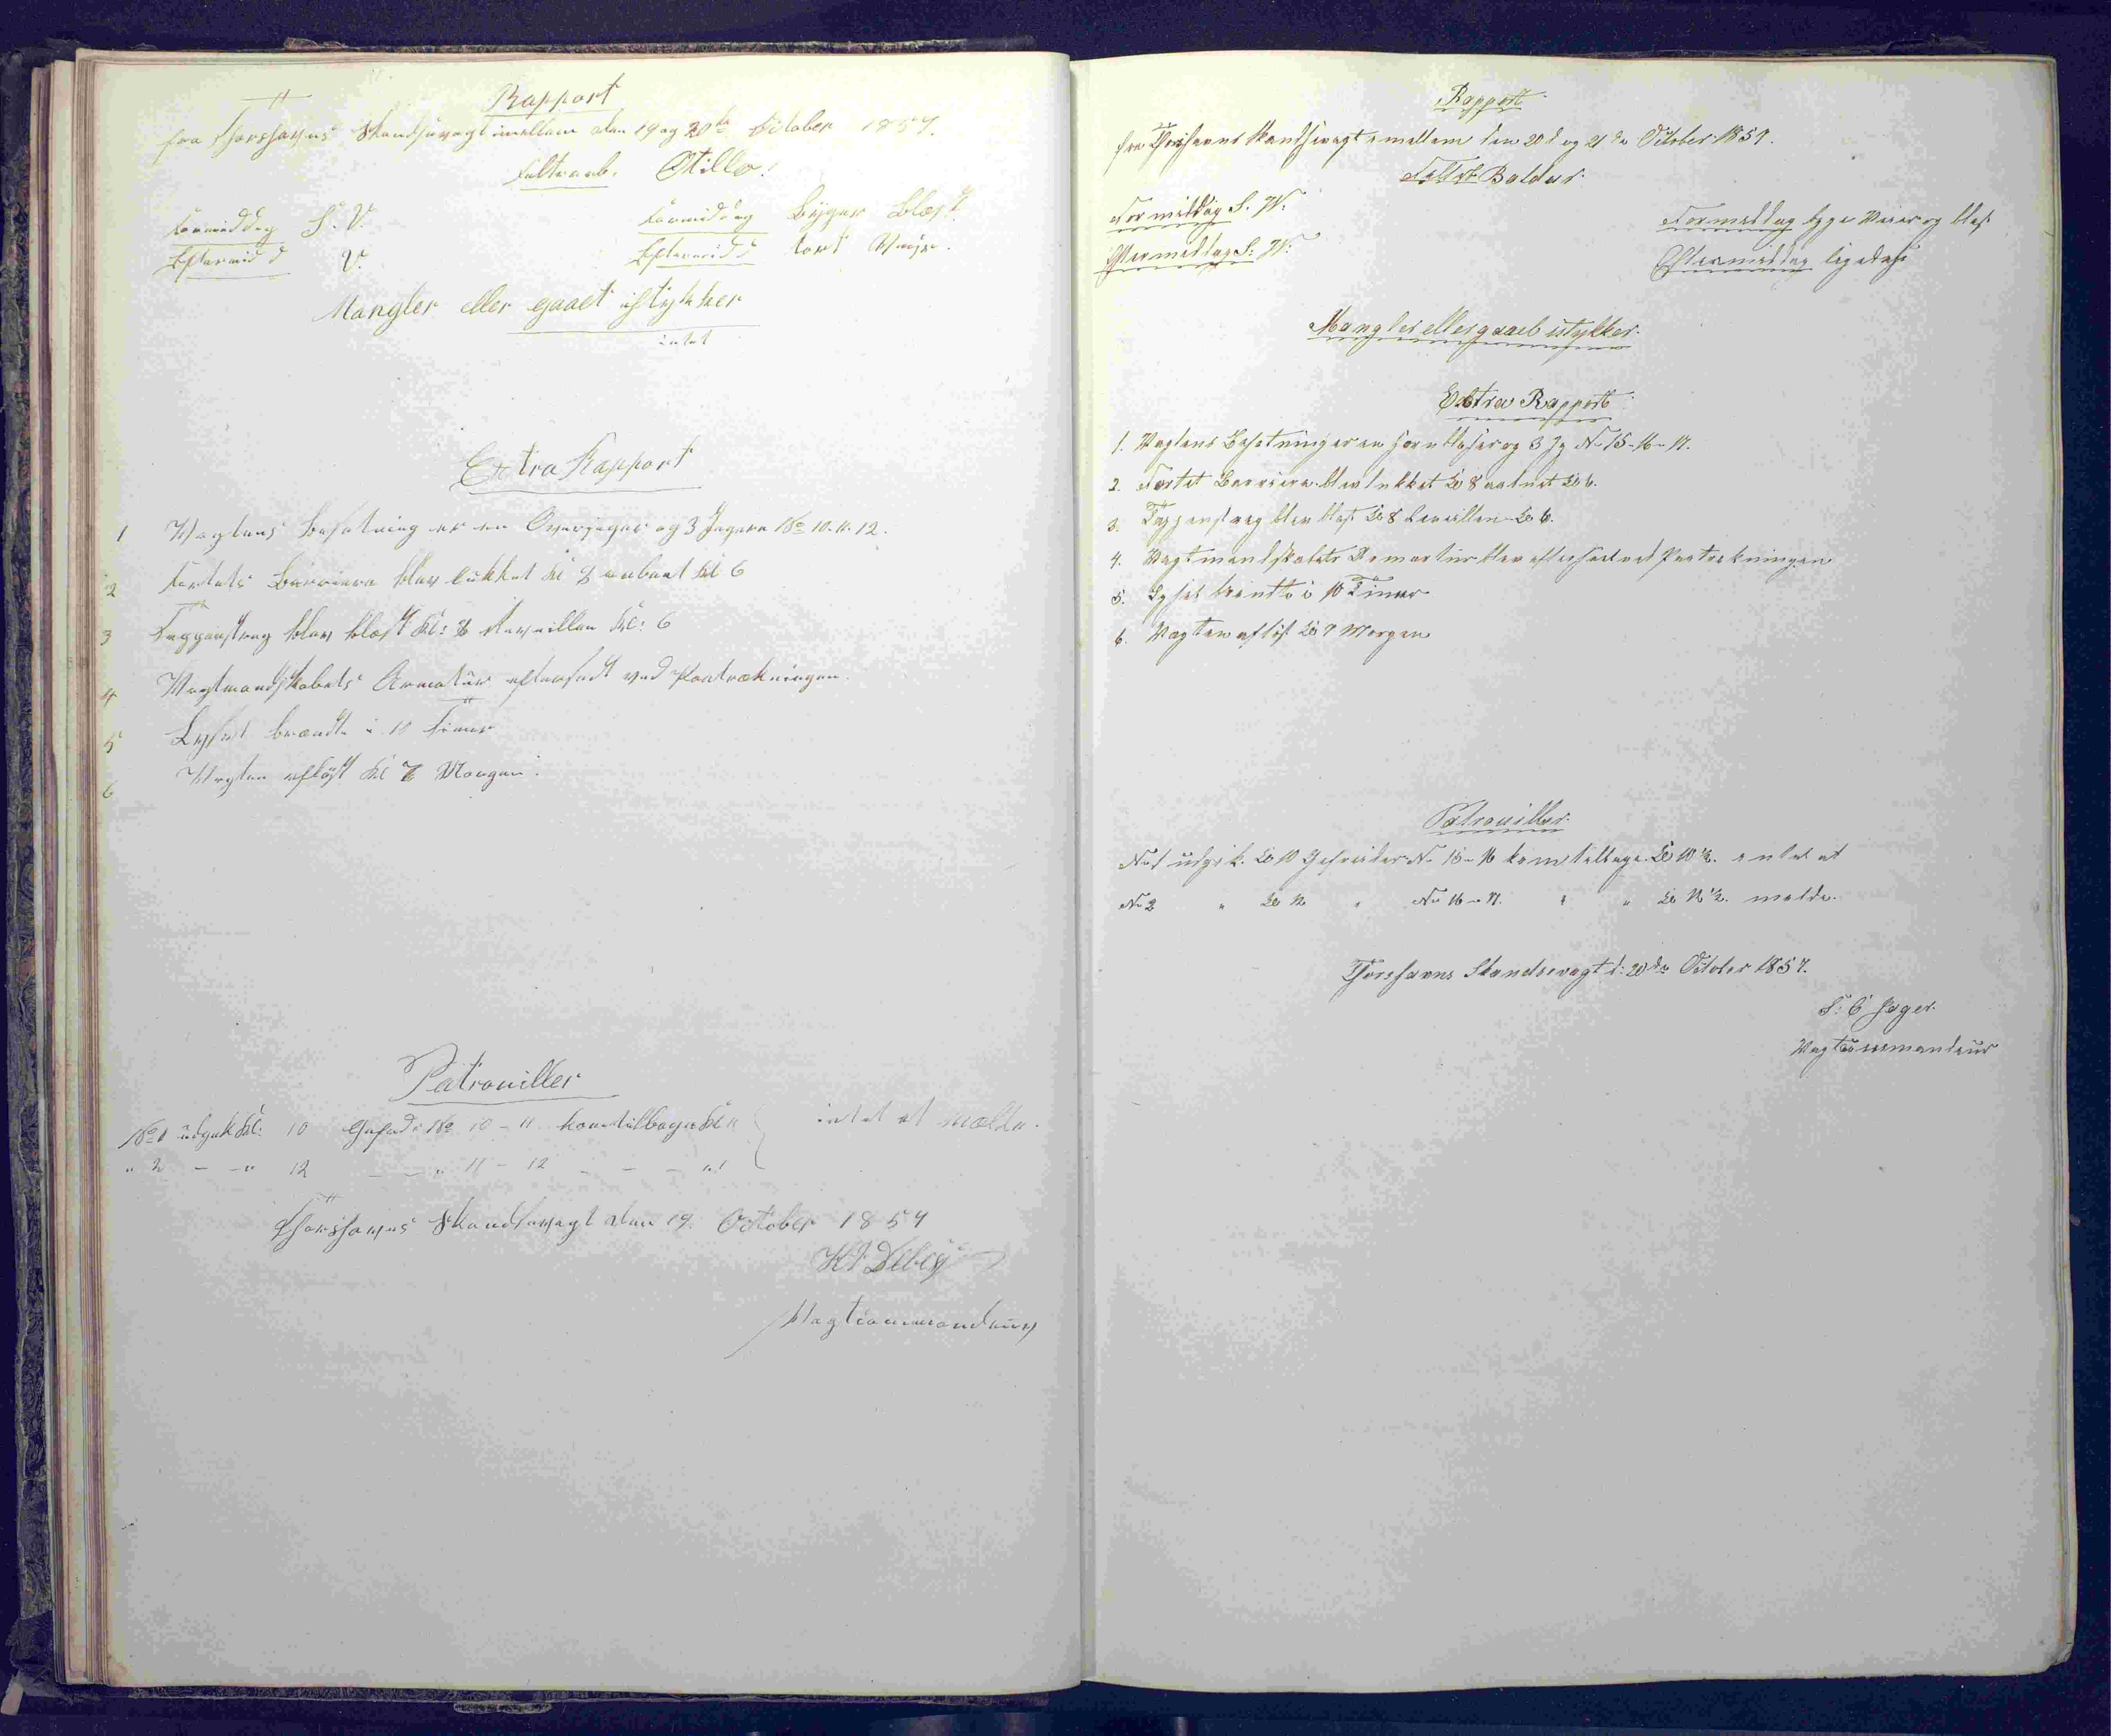 Rapport
fra Thorshavns Skandsevagt imellem den 19 og 20de October 1857.
Feltraab. Otillo.
Formiddag S. V. Formiddag Byger Blæst.
Eftermidd V. Eftermidd tort Vejr.
Mangler eller gaaet istykker
intet
Extra Rapport
1 Vagtens Besætning er en Overjæger og 3 Jægere No 10. 11. 12.
2 Fortets Barriere blev lukket Kl 8 aabnet Kl 6
3 Tappenstreg blev blæst Kl: 8 Reveillen Kl: 6
4 Vagtmandskabets Armatur efterseet ved Paatrækningen.
5 Lyset brændte i 10 Timer
6 Vagten afløst Kl 7 Morgen.
Patrouiller
No 1 udgik Kl: 10 Gefrid: No 10 - 11 kom tilbage Kl 11 intet at melde.
" 2 - - " 12 - - " 11 - 12 - - - " 1
Thorshavns Skandsevagt den 19. October 1857
H J Debes
Vagtcommandeur
Rapport
fra Thorshavns Skandsevagt imellem den 20d og 21de October 1857.
Feltrb Baldur.
Formiddag S. W. Formiddag byge Veier og blæst
Eftermiddag S: W. Eftermiddag ligedan
Mangler eller gaaet istykker.
Extra Rapport
1. Vagtens Besætning er en Hornblæser og 3 Jg No 15-16-17.
2. Fortet Barriere blev lukket Kl 8 aabnet Kl 6.
3. Tappenstreg blev blæst Kl 8 Revellien Kl 6.
4. Vagtmandskabets Armartur blev efterseet ved Paatrekningen
5. Lyset brendte i 10 Timer
6. Vagten afløst Kl 7 Morgen
Patrouiller.
No 1 udgik. Kl 10 Gefreider No 15-16 kom tilbage Kl 10½. intet at
No 2 " Kl 12 " No 16-17. " " Kl 12½. melde.
Thorshavns Skandsevagt d: 20de October 1857.
S: C Jæger.
Vagtcommandeur